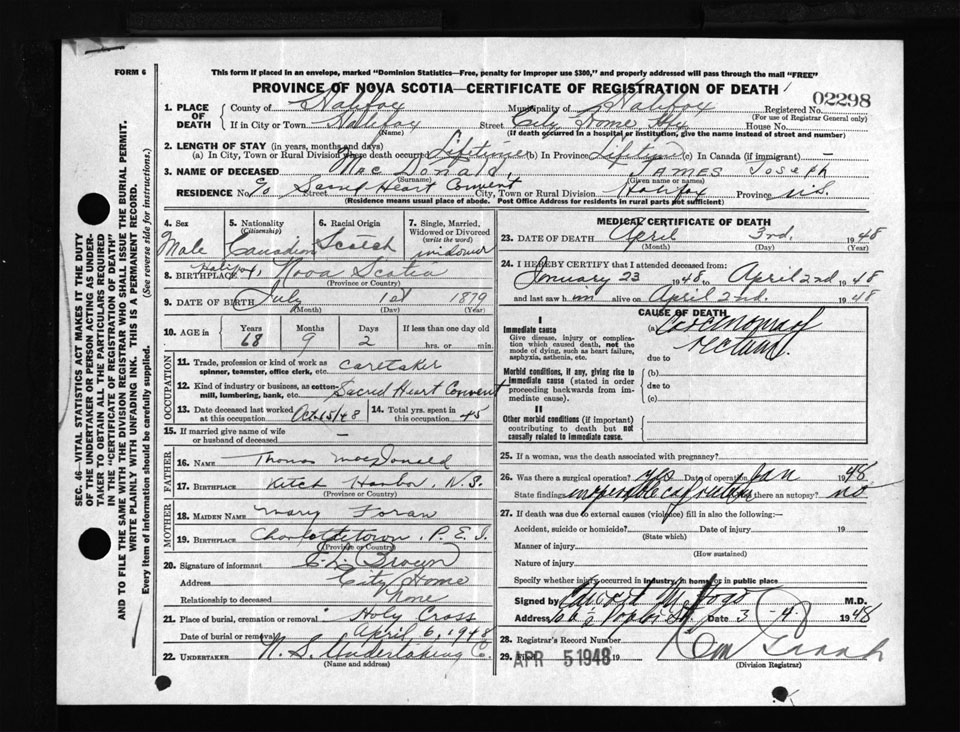 FORM 6
This form if placed in an envelope, marked "Dominion Statistics—Free, penalty for improper use $300," and properly addressed will pass through the mail "FREE"
PROVINCE OF NOVA SCOTIA—CERTIFICATE OF REGISTRATION OF DEATH
02298
1. PLACE OF DEATH
County of Halifax Municipality of Halifax Registered No.
(For use of Registrar General only)
If in City or Town Halifax Street City Home, Hfx House No.
(Name) (If death occurred in a hospital or institution, give the name instead of street and number)
2. LENGTH OF STAY (in years, months and days)
(a) In City, Town or Rural Division where death occurred Lifetime (b) In Province Lifetime (c) In Canada (if immigrant) —
3. NAME OF DECEASED MacDonald, JAMES Joseph
(Surname) (Given name or names)
RESIDENCE No. Street Sacred Heart Convent City, Town or Rural Division Halifax Province N.S.
(Residence means usual place of abode. Post Office Address for residents in rural parts not sufficient)
4. Sex Male
5. Nationality (Citizenship) Canadian
6. Racial Origin Scotch
7. Single, Married, Widowed or Divorced (write the word) widower
8. BIRTHPLACE Halifax, Nova Scotia
(Province or Country)
9. DATE OF BIRTH July 1st 1879
(Month) (Day) (Year)
10. AGE in Years 68 Months 9 Days 2 If less than one day old hrs. or min.
OCCUPATION
11. Trade, profession or kind of work as spinner, teamster, office clerk, etc. caretaker
12. Kind of industry or business, as cotton-mill, lumbering, bank, etc. Sacred Heart Convent
13. Date deceased last worked at this occupation Oct 15/48
14. Total yrs. spent in this occupation 45
15. If married give name of wife or husband of deceased —
FATHER
16. NAME Thomas MacDonald
17. BIRTHPLACE Ketch Harbor, N.S.
(Province or Country)
MOTHER
18. MAIDEN NAME Mary Foran
19. BIRTHPLACE Charlottetown, P.E.I.
(Province or Country)
20. Signature of informant
Address City Home
Relationship to deceased None
21. Place of burial, cremation or removal Holy Cross
Date of burial or removal April 6, 1948
22. UNDERTAKER N. S. Undertaking Co.
(Name and address)
MEDICAL CERTIFICATE OF DEATH
23. DATE OF DEATH April 3rd. 1948
(Month) (Day) (Year)
24. I HEREBY CERTIFY that I attended deceased from:
January 23 1948 to April 2nd 1948
and last saw him alive on April 2nd. 1948
CAUSE OF DEATH
I
Immediate cause
Give disease, injury or complication which caused death, not the mode of dying, such as heart failure, asphyxia, asthenia, etc.
(a) Carcinoma of rectum.
due to
Morbid conditions, if any, giving rise to immediate cause (stated in order proceeding backwards from immediate cause).
(b)
due to
(c)
II
Other morbid conditions (if important) contributing to death but not causally related to immediate cause.
25. If a woman, was the death associated with pregnancy?
26. Was there a surgical operation? yes Date of operation Jan 1948
State findings inoperable Was there an autopsy? no
27. If death was due to external causes (violence) fill in also the following:—
Accident, suicide or homicide? Date of injury 19
(State which)
Manner of injury
(How sustained)
Nature of injury
Specify whether injury occurred in industry, in home, or in public place
Signed by M.D.
Address Date 3 - 4 - 1948
28. Registrar's Record Number
29. Filed APR 5 1948 19
(Division Registrar)
SEC. 46—VITAL STATISTICS ACT MAKES IT THE DUTY
OF THE UNDERTAKER OR PERSON ACTING AS UNDER-
TAKER TO OBTAIN ALL THE PARTICULARS REQUIRED
IN THE "CERTIFICATE OF REGISTRATION OF DEATH"
AND TO FILE THE SAME WITH THE DIVISION REGISTRAR WHO SHALL ISSUE THE BURIAL PERMIT.
WRITE PLAINLY WITH UNFADING INK. THIS IS A PERMANENT RECORD.
Every item of information should be carefully supplied. (See reverse side for instructions.)